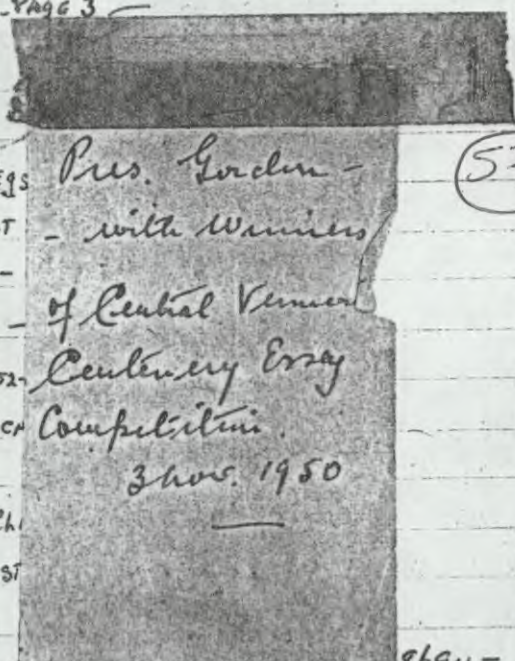 PAGE 3
Pres. Gordon -
- with Winners
of Central Vermont
Centenery Essay
Competition.
3 Nov. 1950